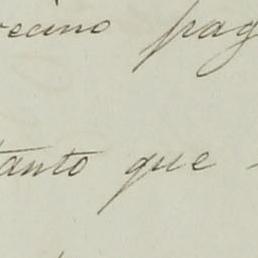 vecino pag
tanto que